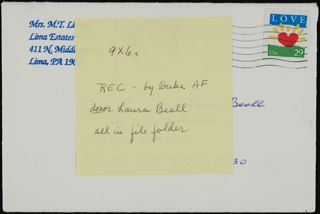 Mrs. M.T. Li
Lima Estates
411 N. Middle
Lima, PA 190
LOVE
USA 29
9X6.
REC - by Duke AF
donor Laura Beall
all in file folder
Beall
30